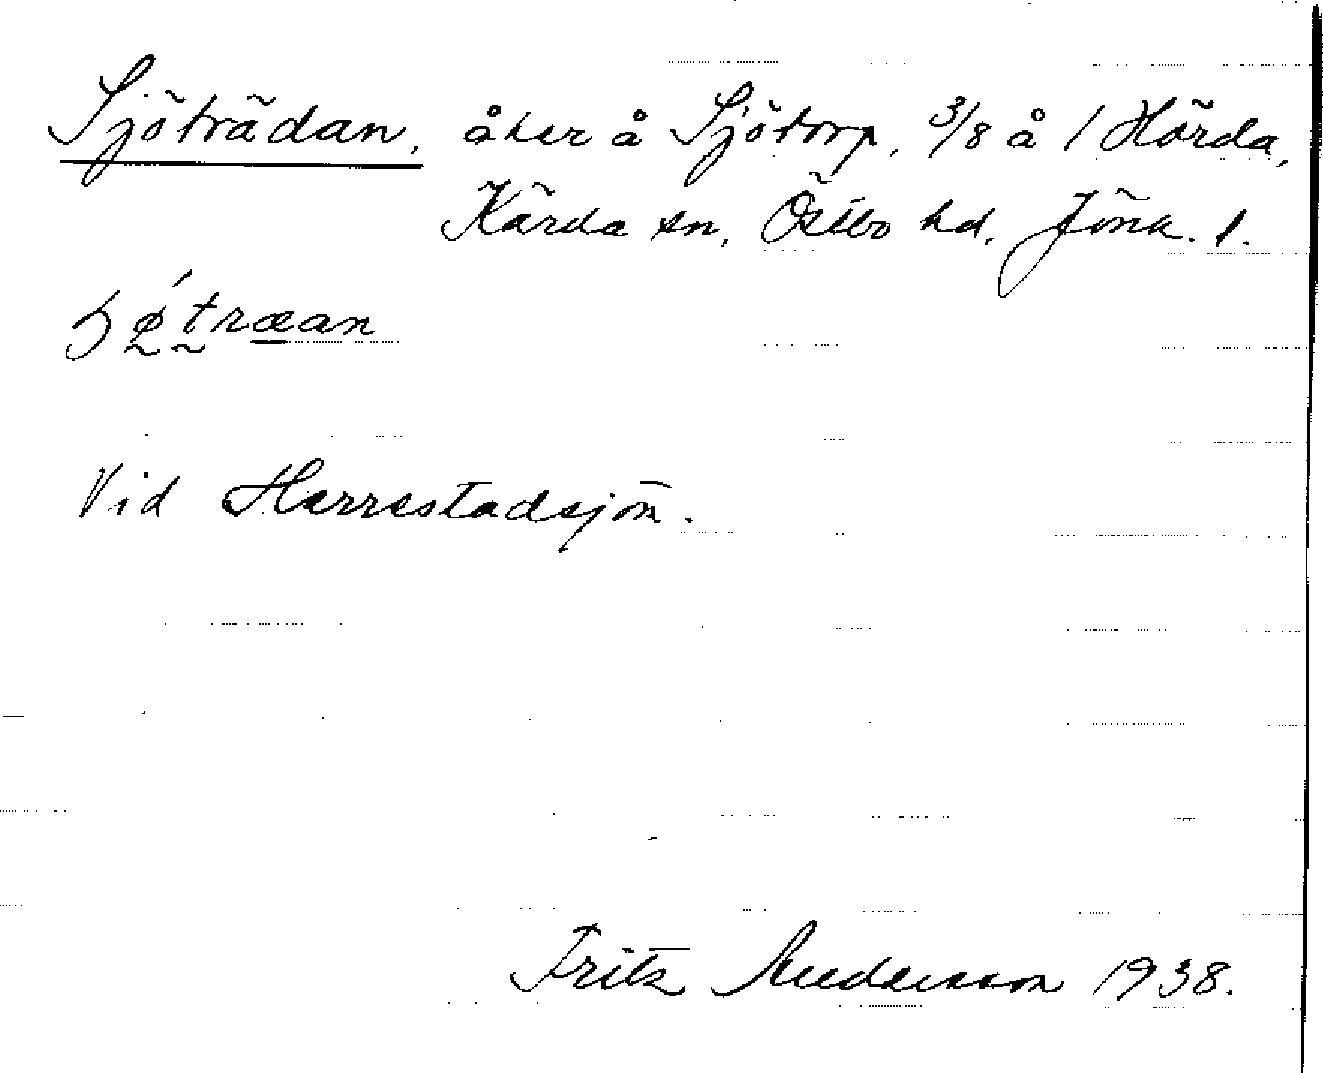 Sjöträdan, åker å Sjötorp, 3/8 å 1 Hörda,
Kärda sn, Östbo hd, Jönk. l.
ɧǿ̰t̰ræan
Vid Herrestadsjön.
Fritz Andersson 1938.